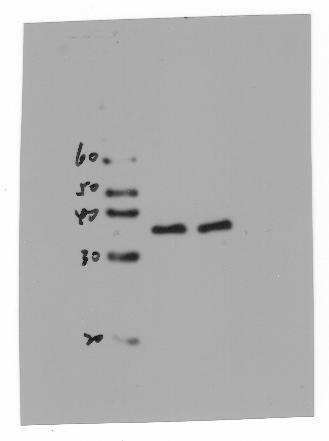 60
50
40
30
20